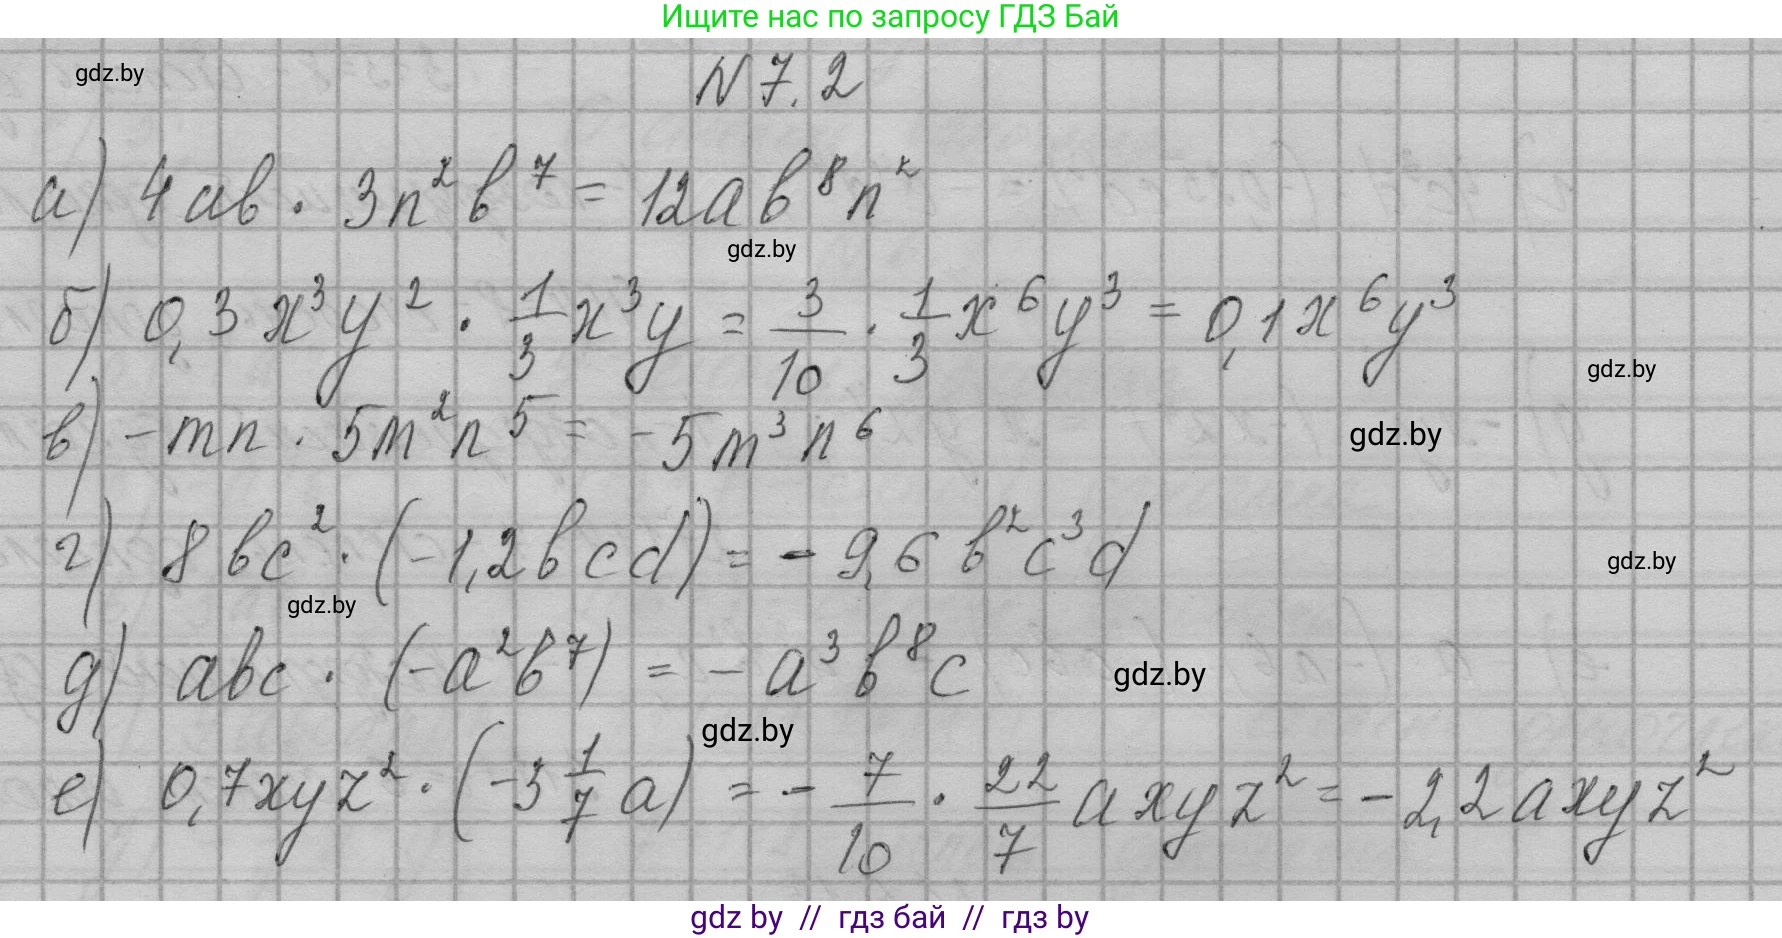 Ищите нас по запросу ГДЗ Бай
gdz.by
N 7.2
а) 4ab · 3n²b⁷ = 12ab⁸n²
gdz.by
б) 0,3x³y² · 1/3 x³y = 3/10 · 1/3 x⁶y³ = 0,1x⁶y³
gdz.by
в) -mn · 5m²n⁵ = -5m³n⁶
gdz.by
г) 8bc² · (-1,2bcd) = -9,6b²c³d
gdz.by
gdz.by
д) abc · (-a²b⁷) = -a³b⁸c
gdz.by
gdz.by
е) 0,7xyz² · (-3 1/7 a) = - 7/10 · 22/7 axyz² = -2,2axyz²
gdz by // гдз бай // гдз by